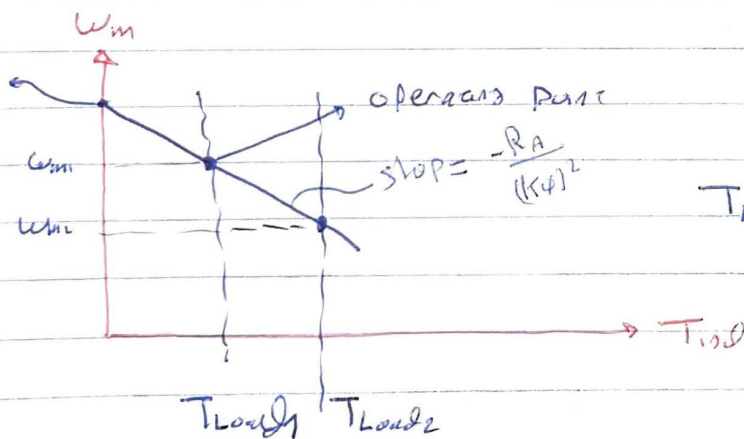 ωm
operating point
ωm1
slop = -RA / (Kφ)²
ωm2
T
Tind
TLoad1 TLoad2